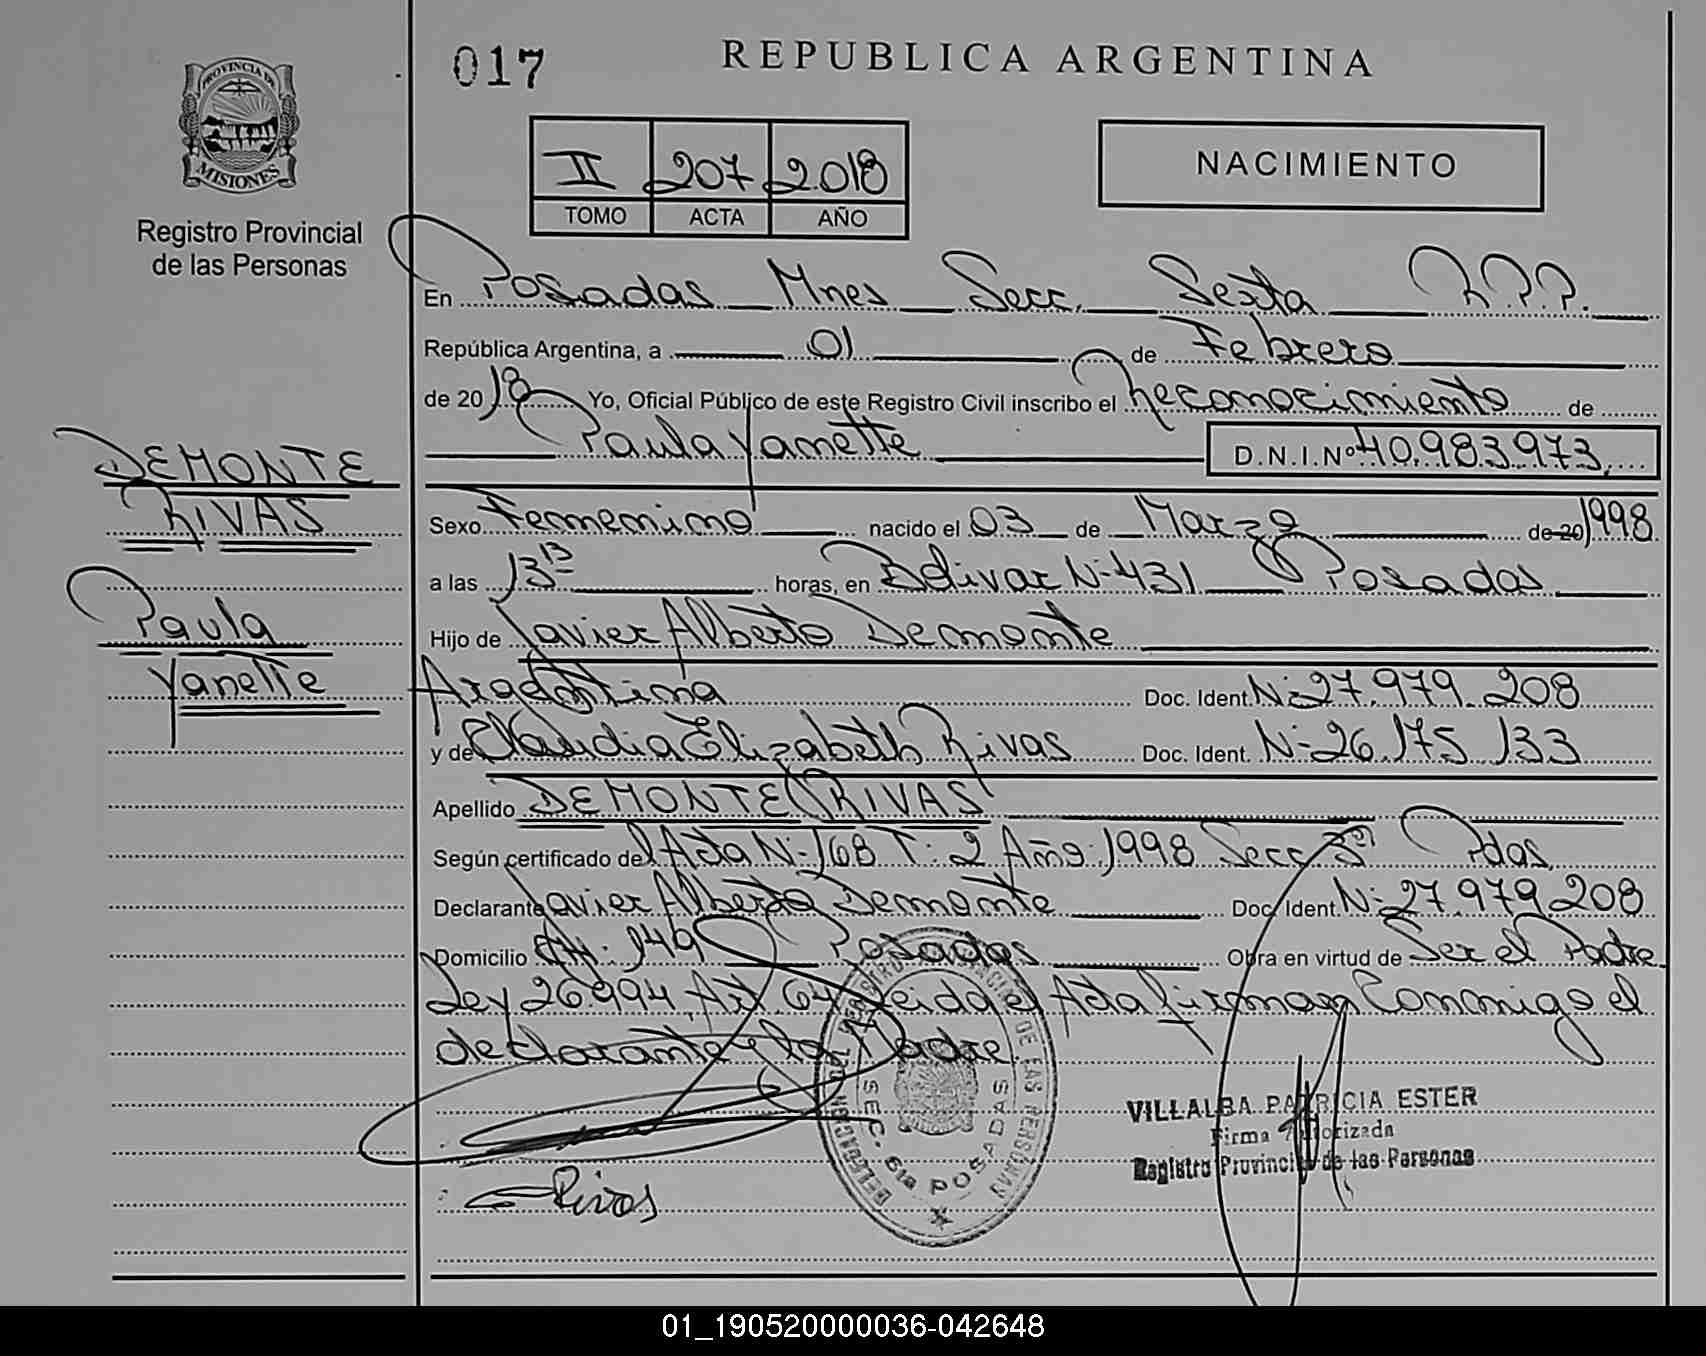 017
REPUBLICA ARGENTINA
PROVINCIA DE
MISIONES
Registro Provincial
de las Personas
II 207 2018
TOMO ACTA AÑO
NACIMIENTO
En Posadas Mnes Secc. Sexta R.P.P.
República Argentina, a 01 de Febrero
de 2018 Yo, Oficial Público de este Registro Civil inscribo el Reconocimiento de
Paula Yanette D.N.I.Nº 40.983.973.
DEMONTE
RIVAS
Paula
Yanette
Sexo Femenino nacido el 03 de Marzo de 20 1998
a las 13 13 horas, en Bolivar Nº 431 Posadas
Hijo de Javier Alberto Demonte
Argentina Doc. Ident. Nº 27.979.208
y de Claudia Elizabeth Rivas Doc. Ident. Nº 26.175.133
Apellido DEMONTE RIVAS
Según certificado de Acta Nº 168 T: 2 Año: 1998 Secc 3ª Pdas,
Declarante Javier Alberto Demonte Doc. Ident. Nº 27.979.208
Domicilio 149 Posadas Obra en virtud de Ser el Padre
Ley 26994, Art. 64 Leida el Acta firman Conmigo el
declarante y la Madre.
DELEGACION DEL REGISTRO PROVINCIAL DE LAS PERSONAS
SEC. 6ta POSADAS
VILLALBA PATRICIA ESTER
Firma Autorizada
Registro Provincial de las Personas
Rivas
01_190520000036-042648